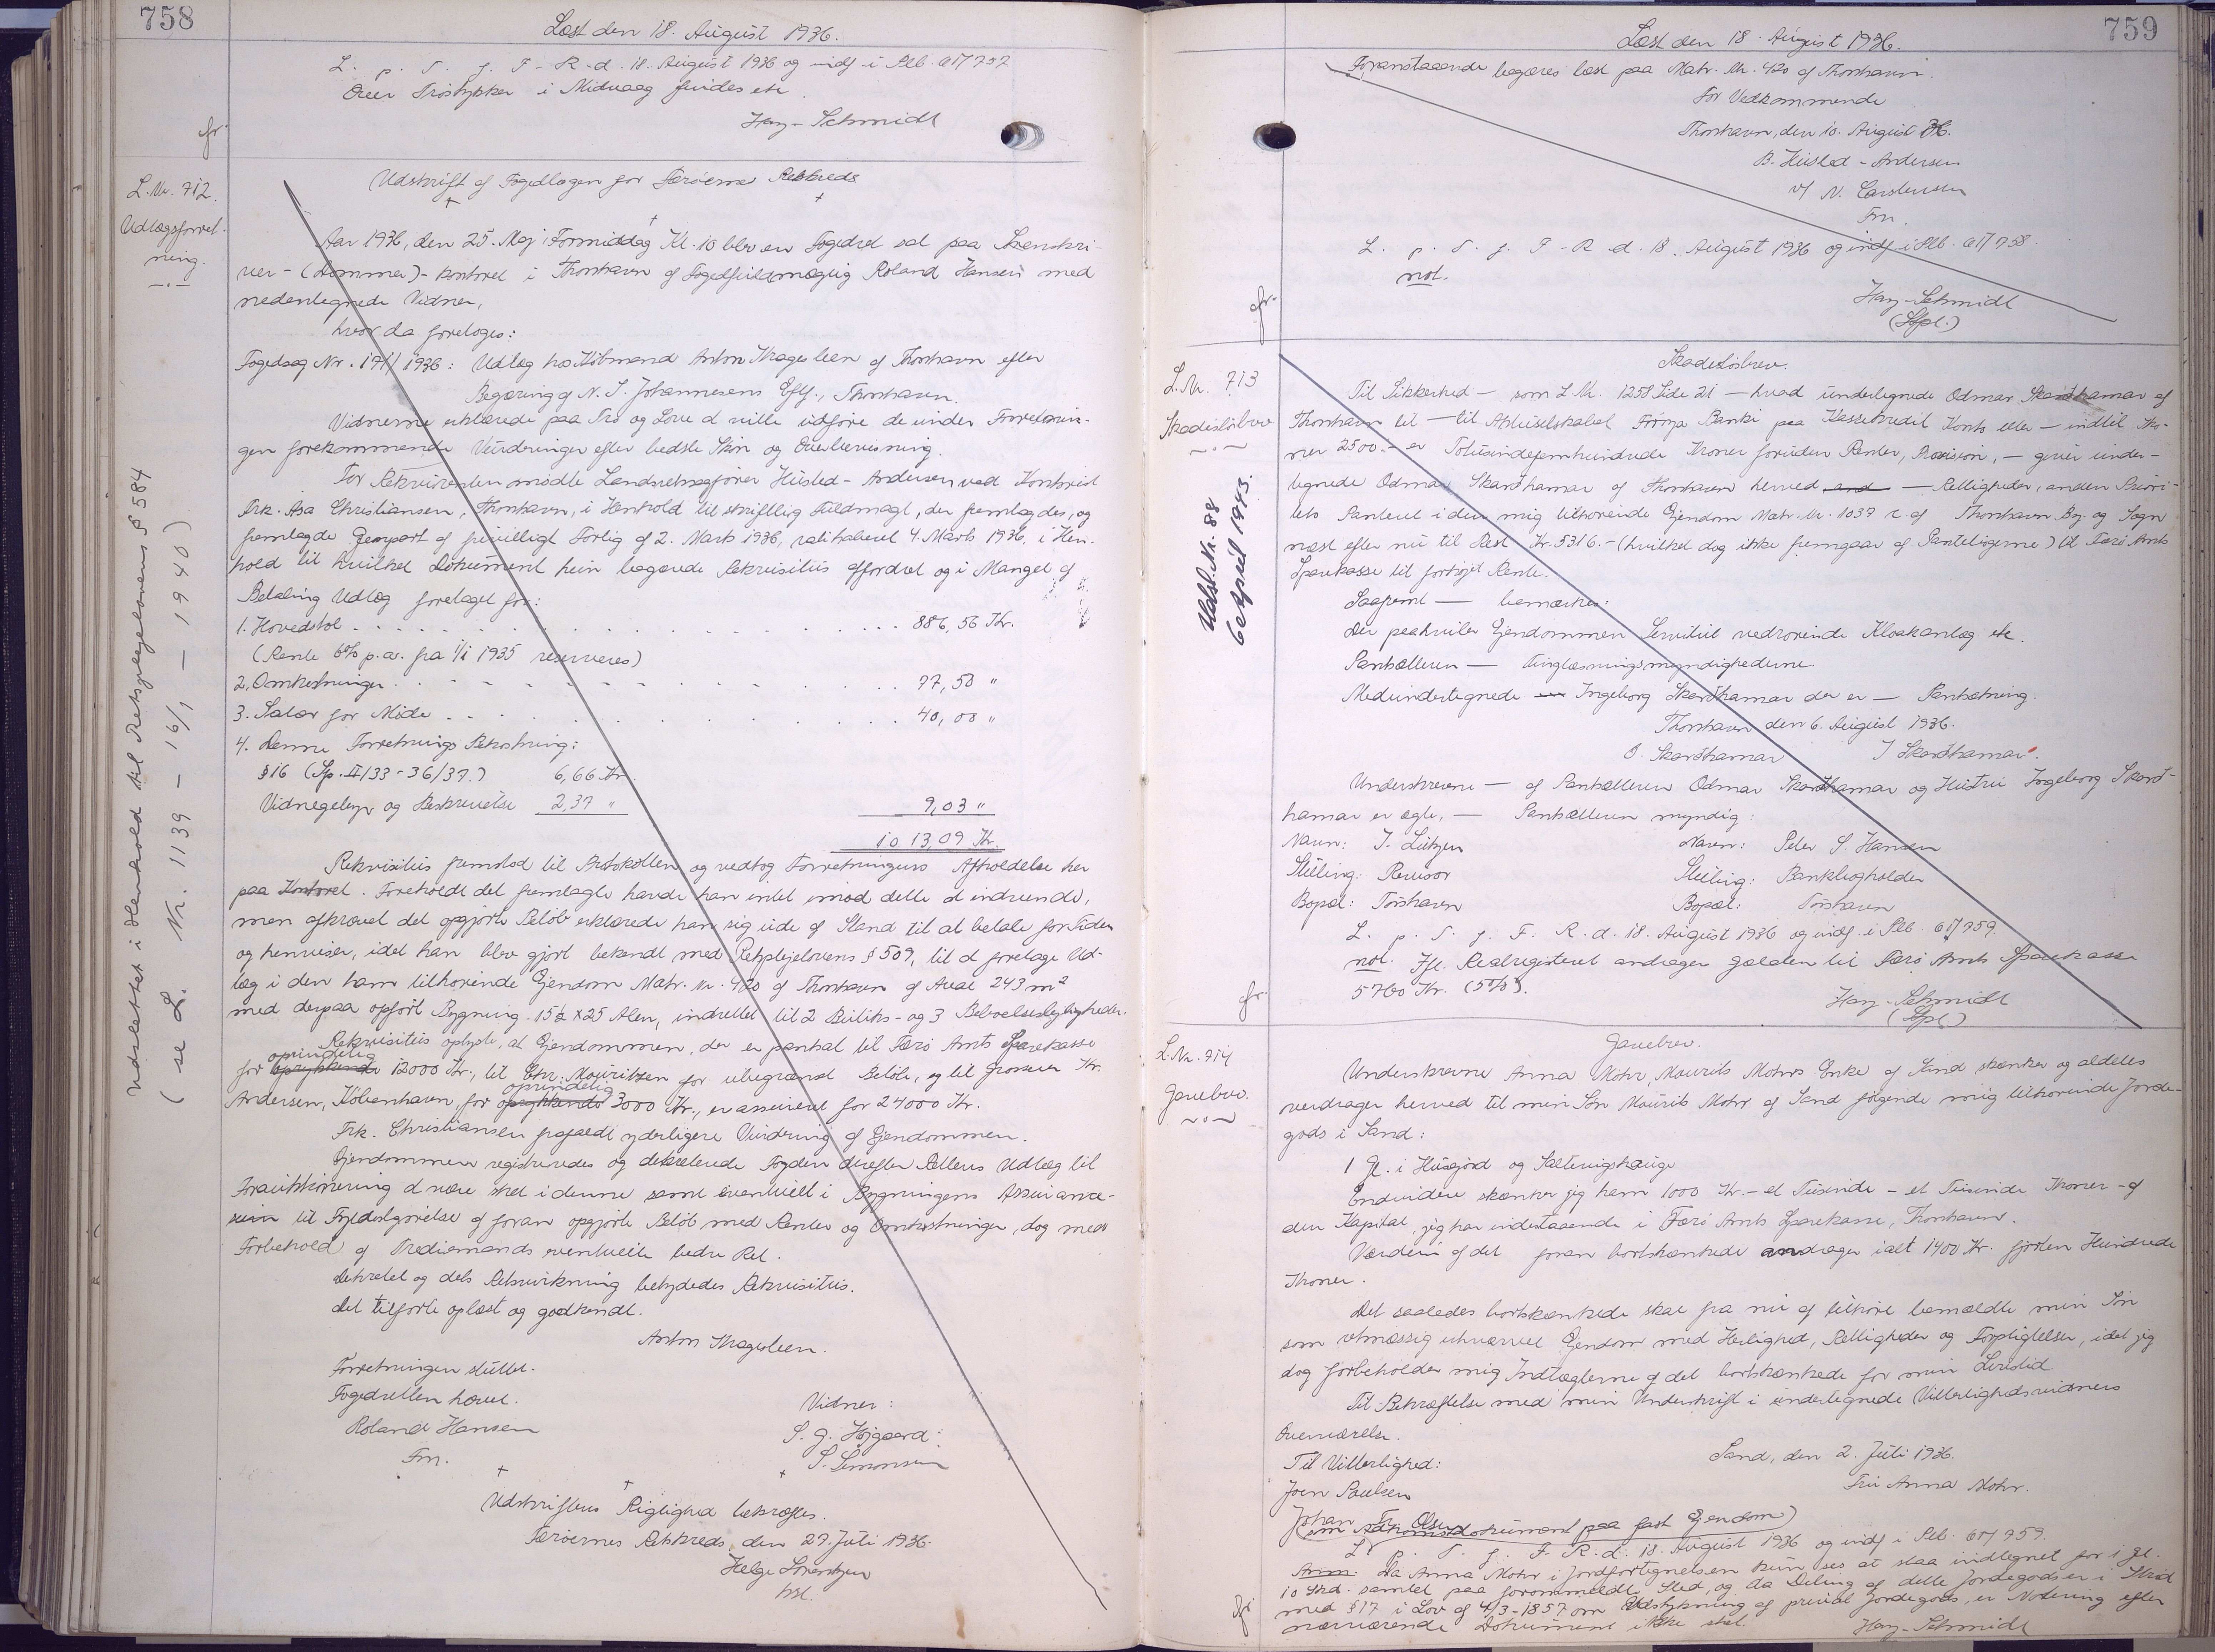 758
Læst den 18. August 1936.
L. p. T. f. F. R. d. 18. August 1936 og indf i Plb. a17 757
Over Trøstykker i Midvaag findes etc.
Hay-Schmidt
L. Nr. 712.
Udlægsforret-
ning.
Udslettet i Henhold til Retsplejelovens § 584
(se L. Nr. 1139 - 16/1 - 1940)
Udskrift af Fogedbogen for Færøerne Retskreds
Aar 1936, den 25. Maj Formiddag Kl. 10 blev en Fogedret sat paa Sorenskri-
ver-(Dommer)-kontoret i Thorshavn af Fogedfuldmægtig Roland Hansen med
nedentegnede Vidner,
hvor da foretoges:
Fogedsag Nr. 171/1936: Udlæg hos Købmand Anton Kragesteen af Thorshavn efter
Begæring af N. J. Johannesens Eftf., Thorshavn.
Vidnerne erklærede paa Tro og Love at ville udføre de under Forretnin-
gen forekommende Vurderinger efter bedste Skøn og Overbevisning.
For Rekvirenten mødte Landsretssagfører Husted-Andersen ved Kontorist
Frk. Asa Christiansen, Thorshavn, i Henhold til skriftlig Fuldmagt, der fremlagdes, og
fremlagde Genpart af frivilligt Forlig af 2. Marts 1936, ratihaberet 4. Marts 1936, i Hen-
hold til hvilket Dokument hun begærede Rekvisitus affordret og i Mangel af
Betaling Udlæg foretaget for:
1. Hovedstol . . . 886,56 Kr.
(Rente 6% p.a. fra 1/1 1935 reserveres)
2. Omkostninger . . . 77,50 "
3. Salær for Møde . . . 40,00 "
4. Denne Forretnings Bekostning:
§ 16 (Sp. II/133-36/37.) 6,66 Kr.
Vidnegebyr og Beskrivelse 2,37 " 9,03 "
1013,09 Kr.
Rekvisitus fremstod til Protokollen og vedtog Forretningens Afholdelse her
paa Kontoret. Foreholdt det fremlagte havde han intet imod dette at indvende,
men afkrævet det opgjorte Beløb erklærede han sig ude af Stand til at betale for Tiden
og henviser, idet han blev gjort bekendt med Retsplejelovens § 509, til at foretage Ud-
læg i den ham tilhørende Ejendom Matr. Nr. 420 af Thorshavn af Areal 243 m²
med derpaa opført Bygning 15½ x 25 Alen, indrettet til 2 Butiks- og 3 Beboelseslejligheder.
Rekvisitus oplyste, at Ejendommen, der er pantsat til Færø Amts Sparekasse
oprindelig
for oprykkende 12000 Kr., til Chr. Mouritzen for ubegrænset Beløb, og til Grosserer Kr.
oprindelig
Andersen, København, for oprykkende 3000 Kr., er assureret for 24000 Kr.
Frk. Christiansen frafaldt yderligere Vurdering af Ejendommen.
Ejendommen registreredes og dekreterede Fogden derefter Rettens Udlæg til
Forauktionering at være sket i denne samt eventuelt i Bygningens Assurance-
sum til Fyldestgørelse af foran opgjorte Beløb med Renter og Omkostninger, dog med
Forbehold af Trediemands eventuelle bedre Ret.
Dekretet og dets Retsvirkning betydedes Rekvisitus.
Det tilførte oplæst og godkendt.
Anton Kragesteen.
Forretningen sluttet.
Fogedretten hævet.
Roland Hansen
Fm.
Vidner:
S. G. Højgaard.
S. Simonsen
Udskriftens Rigtighed bekræftes.
Færøernes Retskreds, den 27. Juli 1936.
Helge Sørensen
kst.
759
Læst den 18. August 1936.
Foranstaaende begæres læst paa Matr. Nr. 420 af Thorshavn.
For Vedkommende
Thorshavn, den 10. August 36.
B. Husted-Andersen
v/ N. Carstensen
Fm.
L. p. T. f. F. R. d. 18. August 1936 og indf i Plb. a17 758.
not.
Hay-Schmidt
(Stpl.)
L. Nr. 713
Skadesløsbrev
Udsl. Nr. 88
6 April 1943.
Skadesløsbrev.
Til Sikkerhed — som L. Nr. 1258 Side 21 — hvad undertegnede Odmar Skarðhamar af
Thorshavn til — til Aktieselskabet Føroya Banki paa Kassekredit Konto eller — indtil Kro-
ner 2500.- er Totusindefemhundrede Kroner foruden Renter, Provision, — giver under-
tegnede Odmar Skarðhamar af Thorshavn herved and — Rettigheder, anden Priori-
tets Panteret i den mig tilhørende Ejendom Matr. Nr. 1037 c. af Thorshavn By og Sogn
næst efter nu til Rest Kr. 5316.- (hvilket dog ikke fremgaar af Pantebøgerne) til Færø Amts
Sparekasse til forhøjet Rente.
Saafremt — bemærkes:
Der paahviler Ejendommen Servitut vedrørende Kloakanlæg etc.
Panthaveren — Tinglæsningsmyndighederne
Medundertegnede Ingeborg Skarðhamar der er — Pantsætning.
Thorshavn den 6. August 1936.
O. Skarðhamar I Skarðhamar.
Underskrevne — af Pantsætteren Odmar Skarðhamar og Hustru Ingeborg Skarð-
hamar er ægte, — Pantsætteren myndig:
Navn: J. Lützen Navn: Peter S. Hansen
Stilling: Revisor Stilling: Bankbogholder
Bopæl: Torshavn Bopæl: Torshavn
L. p. T. f. F. R. d. 18. August 1936 og indf. i Plb. a17 759
not. Ifl. Realregisteret andrager Gælden til Færø Amts Sparekasse
5700 Kr. (5%).
Hay-Schmidt
(Stpl.)
L. Nr. 714
Gavebrev.
Gavebrev.
Underskrevne Anna Mohr, Mourits Mohrs Enke af Sand skænker og aldeles
overdrager herved til min Søn Mourits Mohr af Sand følgende mig tilhørende Jorde-
gods i Sand:
1 Gl. i Husagørd og Saltevigshauge
Endvidere skænker jeg ham 1000 Kr. - et Tusinde - et Tusinde Kroner - af
den Kapital, jeg har indestaaende i Færø Amts Sparekasse, Thorshavn.
Værdien af det foran bortskænkede andrager ialt 1400 Kr. fjorten Hundrede
Kroner.
Det saaledes bortskænkede skal fra nu af tilhøre bemældte min Søn
som retmæssig erhvervet Ejendom med Herlighed, Rettigheder og Forpligtelser, idet jeg
dog forbeholder mig Indtægterne af det bortskænkede for min Livstid
Til Bekræftelse med min Underskrift i undertegnede Vitterlighedsvidners
Overværelse.
Sand, den 2. Juli 1936.
Til Vitterlighed:
Fru Anna Mohr.
Joen Poulsen
Johan Fr. Olsen
(som Adkomstdokument paa fast Ejendom)
L. p. T. f. F. R. d. 18. August 1936 og indf i Plb. a17 759.
Anm. Da Anna Mohr i Jordfortegnelsen kun ses at staa indtegnet for 1 Gl.
10 Skd. samlet paa forommeldte Sted, og da Deling af dette Jordegods er i Strid
med § 17 i Lov af 4/3-1857 om Udstykning af privat Jordegods, er Notering efter
nærværende Dokument ikke sket.
Hay-Schmidt